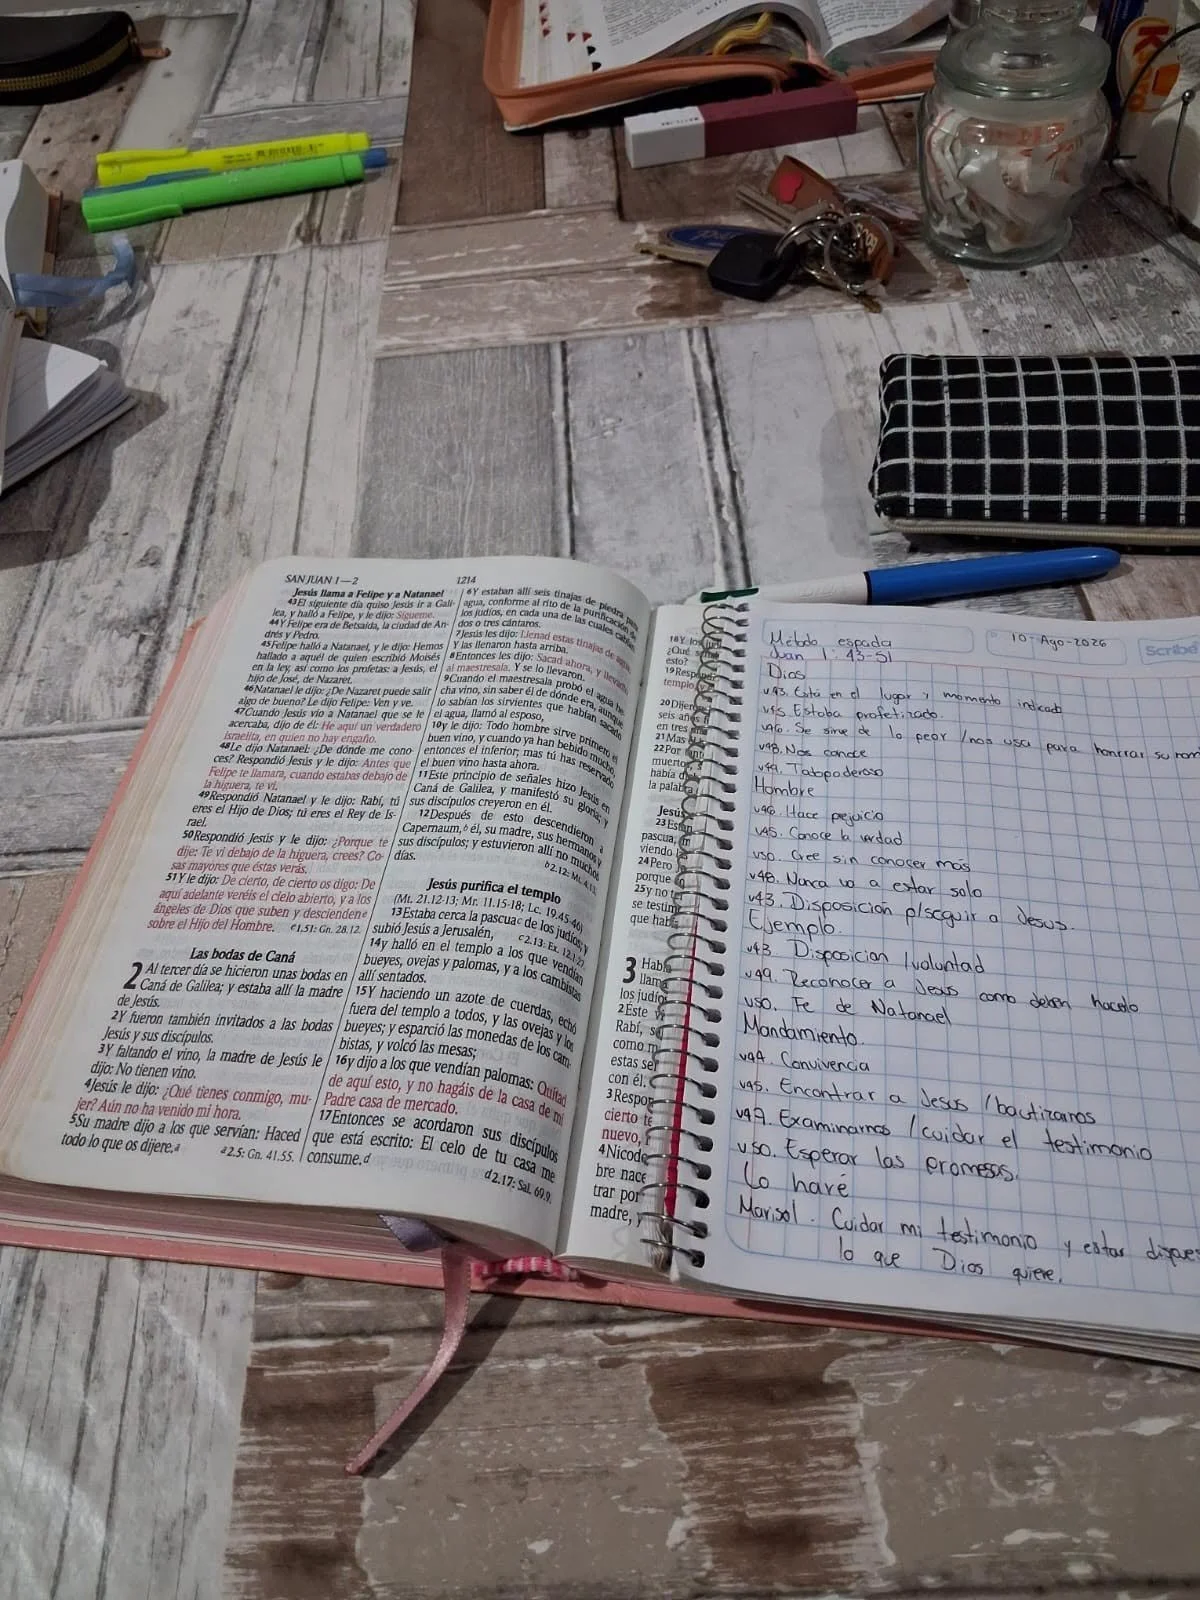 SAN JUAN 1—2
1214
Jesús llama a Felipe y a Natanael
43El siguiente día quiso Jesús ir a Gali-
lea, y halló a Felipe, y le dijo: Sígueme.
44Y Felipe era de Betsaida, la ciudad de An-
drés y Pedro.
45Felipe halló a Natanael, y le dijo: Hemos
hallado a aquél de quien escribió Moisés
en la ley, así como los profetas: a Jesús, el
hijo de José, de Nazaret.
46Natanael le dijo: ¿De Nazaret puede salir
algo de bueno? Le dijo Felipe: Ven y ve.
47Cuando Jesús vio a Natanael que se le
acercaba, dijo de él: He aquí un verdadero
israelita, en quien no hay engaño.
48Le dijo Natanael: ¿De dónde me cono-
ces? Respondió Jesús y le dijo: Antes que
Felipe te llamara, cuando estabas debajo de
la higuera, te vi.
49Respondió Natanael y le dijo: Rabí, tú
eres el Hijo de Dios; tú eres el Rey de Is-
rael.
50Respondió Jesús y le dijo: ¿Porque te
dije: Te vi debajo de la higuera, crees? Co-
sas mayores que éstas verás.
51Y le dijo: De cierto, de cierto os digo: De
aquí adelante veréis el cielo abierto, y a los
ángeles de Dios que suben y descienden
sobre el Hijo del Hombre. e1.51: Gn. 28.12.
Las bodas de Caná
2 Al tercer día se hicieron unas bodas en
Caná de Galilea; y estaba allí la madre
de Jesús.
2Y fueron también invitados a las bodas
Jesús y sus discípulos.
3Y faltando el vino, la madre de Jesús le
dijo: No tienen vino.
4Jesús le dijo: ¿Qué tienes conmigo, mu-
jer? Aún no ha venido mi hora.
5Su madre dijo a los que servían: Haced
todo lo que os dijere.a a2.5: Gn. 41.55.
6Y estaban allí seis tinajas de piedra para
agua, conforme al rito de la purificación de
los judíos, en cada una de las cuales cabían
dos o tres cántaros.
7Jesús les dijo: Llenad estas tinajas de agua.
Y las llenaron hasta arriba.
8Entonces les dijo: Sacad ahora, y llevadlo
al maestresala. Y se lo llevaron.
9Cuando el maestresala probó el agua he-
cha vino, sin saber él de dónde era, aunque
lo sabían los sirvientes que habían sacado
el agua, llamó al esposo,
10y le dijo: Todo hombre sirve primero el
buen vino, y cuando ya han bebido mucho,
entonces el inferior; mas tú has reservado
el buen vino hasta ahora.
11Este principio de señales hizo Jesús en
Caná de Galilea, y manifestó su gloria; y
sus discípulos creyeron en él.
12Después de esto descendieron a
Capernaum,b él, su madre, sus hermanos y
sus discípulos; y estuvieron allí no muchos
días. b2.12: Mt. 4.13.
Jesús purifica el templo
(Mt. 21.12-13; Mr. 11.15-18; Lc. 19.45-46)
13Estaba cerca la pascuac de los judíos; y
subió Jesús a Jerusalén, c2.13: Ex. 12.1-27.
14y halló en el templo a los que vendían
bueyes, ovejas y palomas, y a los cambistas
allí sentados.
15Y haciendo un azote de cuerdas, echó
fuera del templo a todos, y las ovejas y los
bueyes; y esparció las monedas de los cam-
bistas, y volcó las mesas;
16y dijo a los que vendían palomas: Quitad
de aquí esto, y no hagáis de la casa de mi
Padre casa de mercado.
17Entonces se acordaron sus discípulos
que está escrito: El celo de tu casa me
consume.d
d2.17: Sal. 69.9.
18Y los
¿Qué
esto?
templo
seis años
en tres
21Mas
22Por
muerto
había
la palabra
Jesús
pascua,
viendo
24Pero
porque
25y no
se testim
que hab
3 Hab
los judío
2Este
Rabí,
como
estas se
con él.
3Respon
cierto te
nuevo,
4Nicode
bre nace
trar por
madre, y
Método espada
10-Ago-2026
Scribe
Juan 1:43-51
Dios
v43. Está en el lugar y momento indicado
v45. Estaba profetizado.
v46. Se sirve de lo peor /nos usa para honrar su nom
v48. Nos conoce
v49. Todopoderoso
Hombre
v46. Hace prejuicio
v45. Conoce la verdad
v50. Cree sin conocer más
v48. Nunca va a estar solo
v43. Disposición p/seguir a Jesus.
Ejemplo.
v43. Disposicion /voluntad
v49. Reconocer a Jesus como deben hacerlo
v50. Fe de Natanael
Mandamiento.
v44. Convivencia
v45. Encontrar a Jesus /bautizarnos
v47. Examinarnos /cuidar el testimonio
v50. Esperar las promesas.
Lo haré
Marisol. Cuidar mi testimonio y estar dispues
lo que Dios quiere.